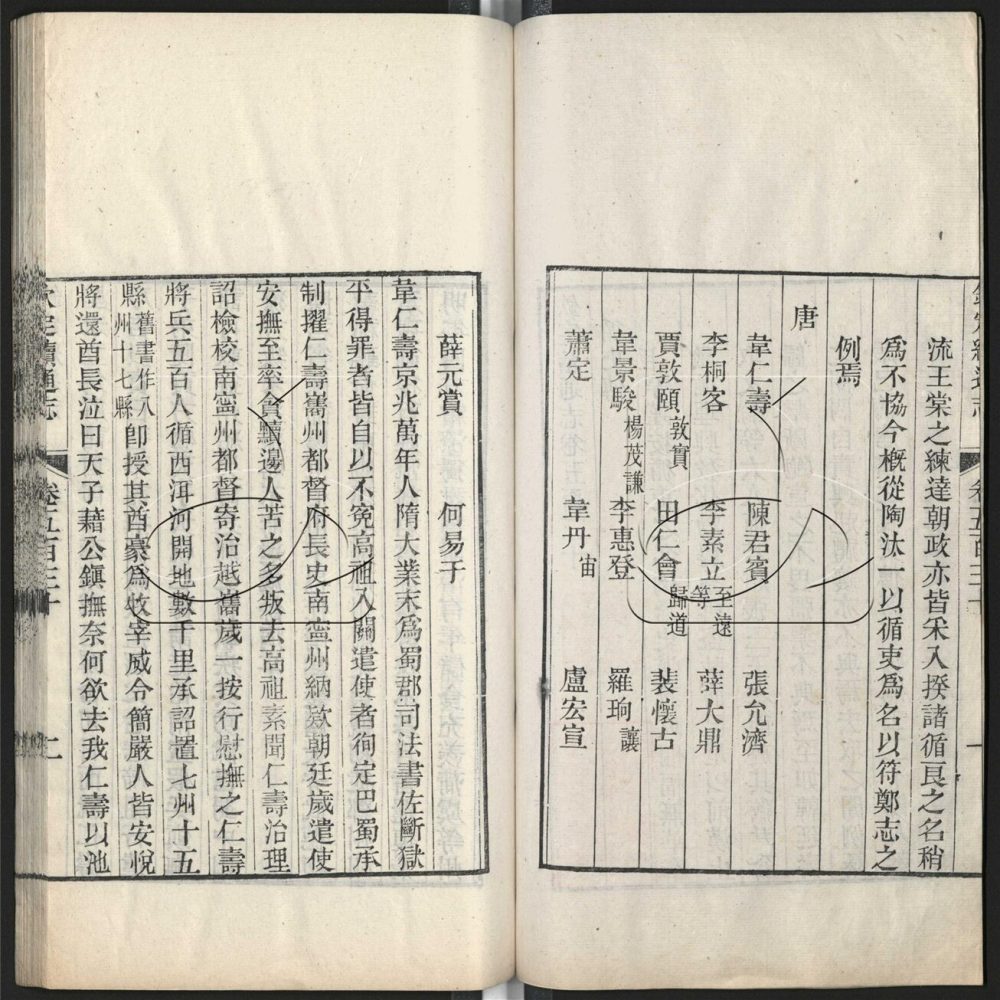 流王棠之練達朝政亦皆采入揆諸循良之名稍
爲不協今槪從陶汰一以循吏爲名以符鄭志之
例焉
唐
韋仁壽 陳君賓 張允濟
李桐客 李素立 至遠等 薛大鼎
賈敦頤 敦實 田仁會 歸道 裴懷古
韋景駿 楊茂謙 李惠登 羅珦 讓
蕭定 韋丹 宙 盧宏宣
薛元賞 何易于
韋仁壽京兆萬年人隋大業末爲蜀郡司法書佐斷獄
平得罪者皆自以不寃高祖入關遣使者徇定巴蜀承
制擢仁壽巂州都督府長史南寧州納欵朝廷歲遣使
安撫至率貪黷邊人苦之多叛去高祖素聞仁壽治理
詔檢校南寧州都督寄治越巂歲一按行慰撫之仁壽
將兵五百人循西洱河開地數千里承詔置七州十五
縣 舊書作八州十七縣 卽授其酋豪爲牧宰威令簡嚴人皆安悅
將還酋長泣曰天子藉公鎭撫奈何欲去我仁壽以池
欽定續通志 卷五百三十 二